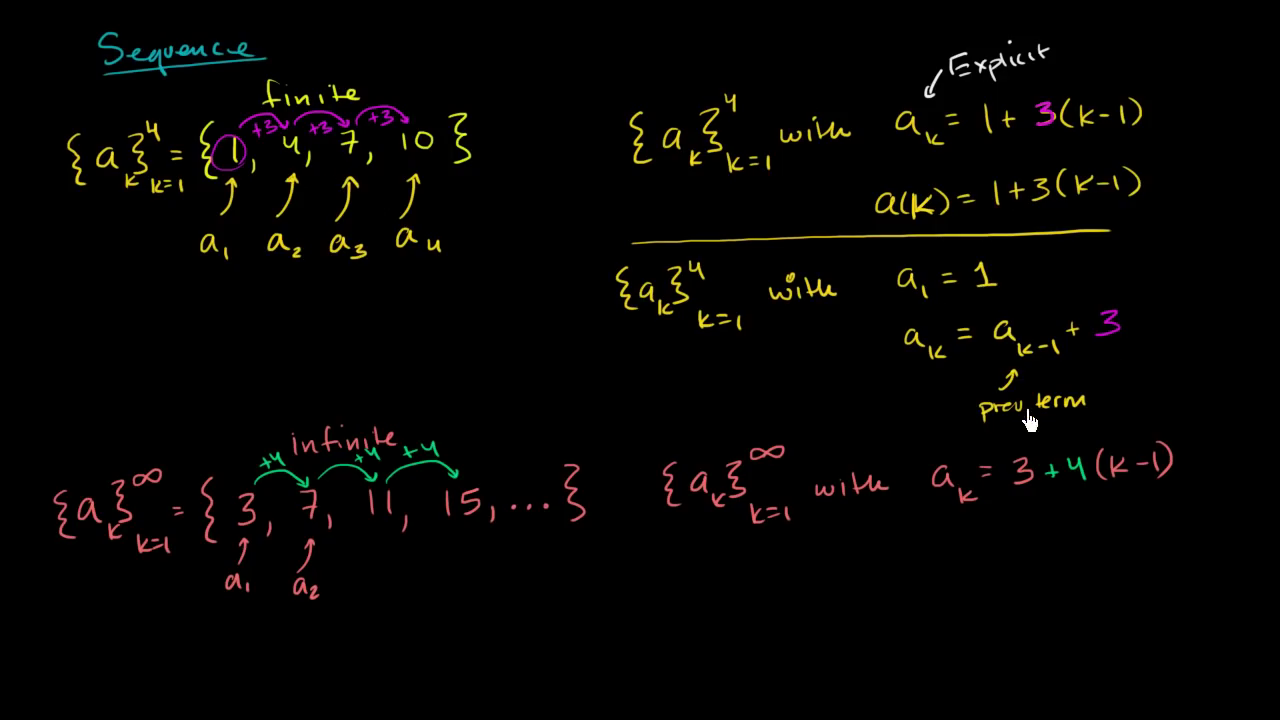 Sequence
finite
+3 +3 +3
{a_k}_{k=1}^4 = {1, 4, 7, 10}
a_1 a_2 a_3 a_4
Explicit
{a_k}_{k=1}^4 with a_k = 1 + 3(k-1)
a(k) = 1+3(k-1)
{a_k}_{k=1}^4 with a_1 = 1
a_k = a_{k-1} + 3
prev term
infinite
+4 +4 +4
{a_k}_{k=1}^∞ = {3, 7, 11, 15, ...}
a_1 a_2
{a_k}_{k=1}^∞ with a_k = 3 +4(k-1)